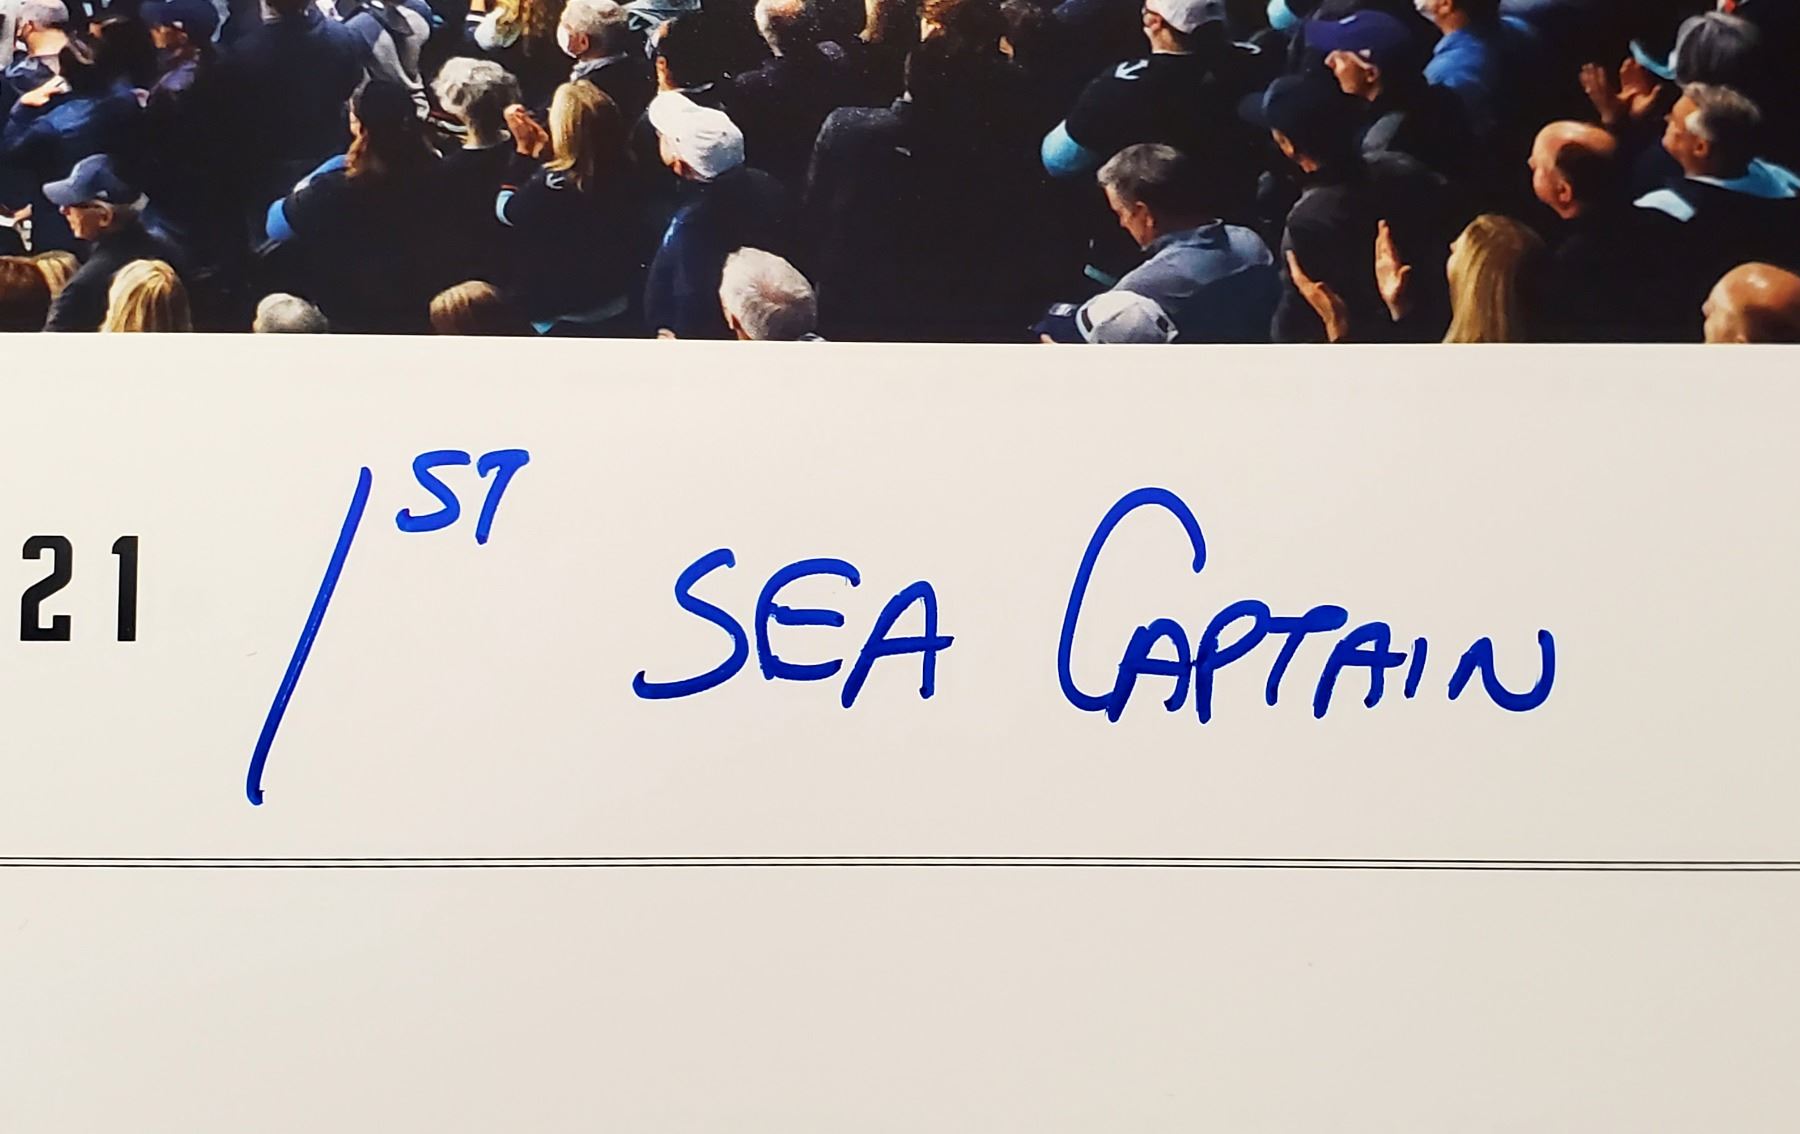 21 1ST SEA CAPTAIN